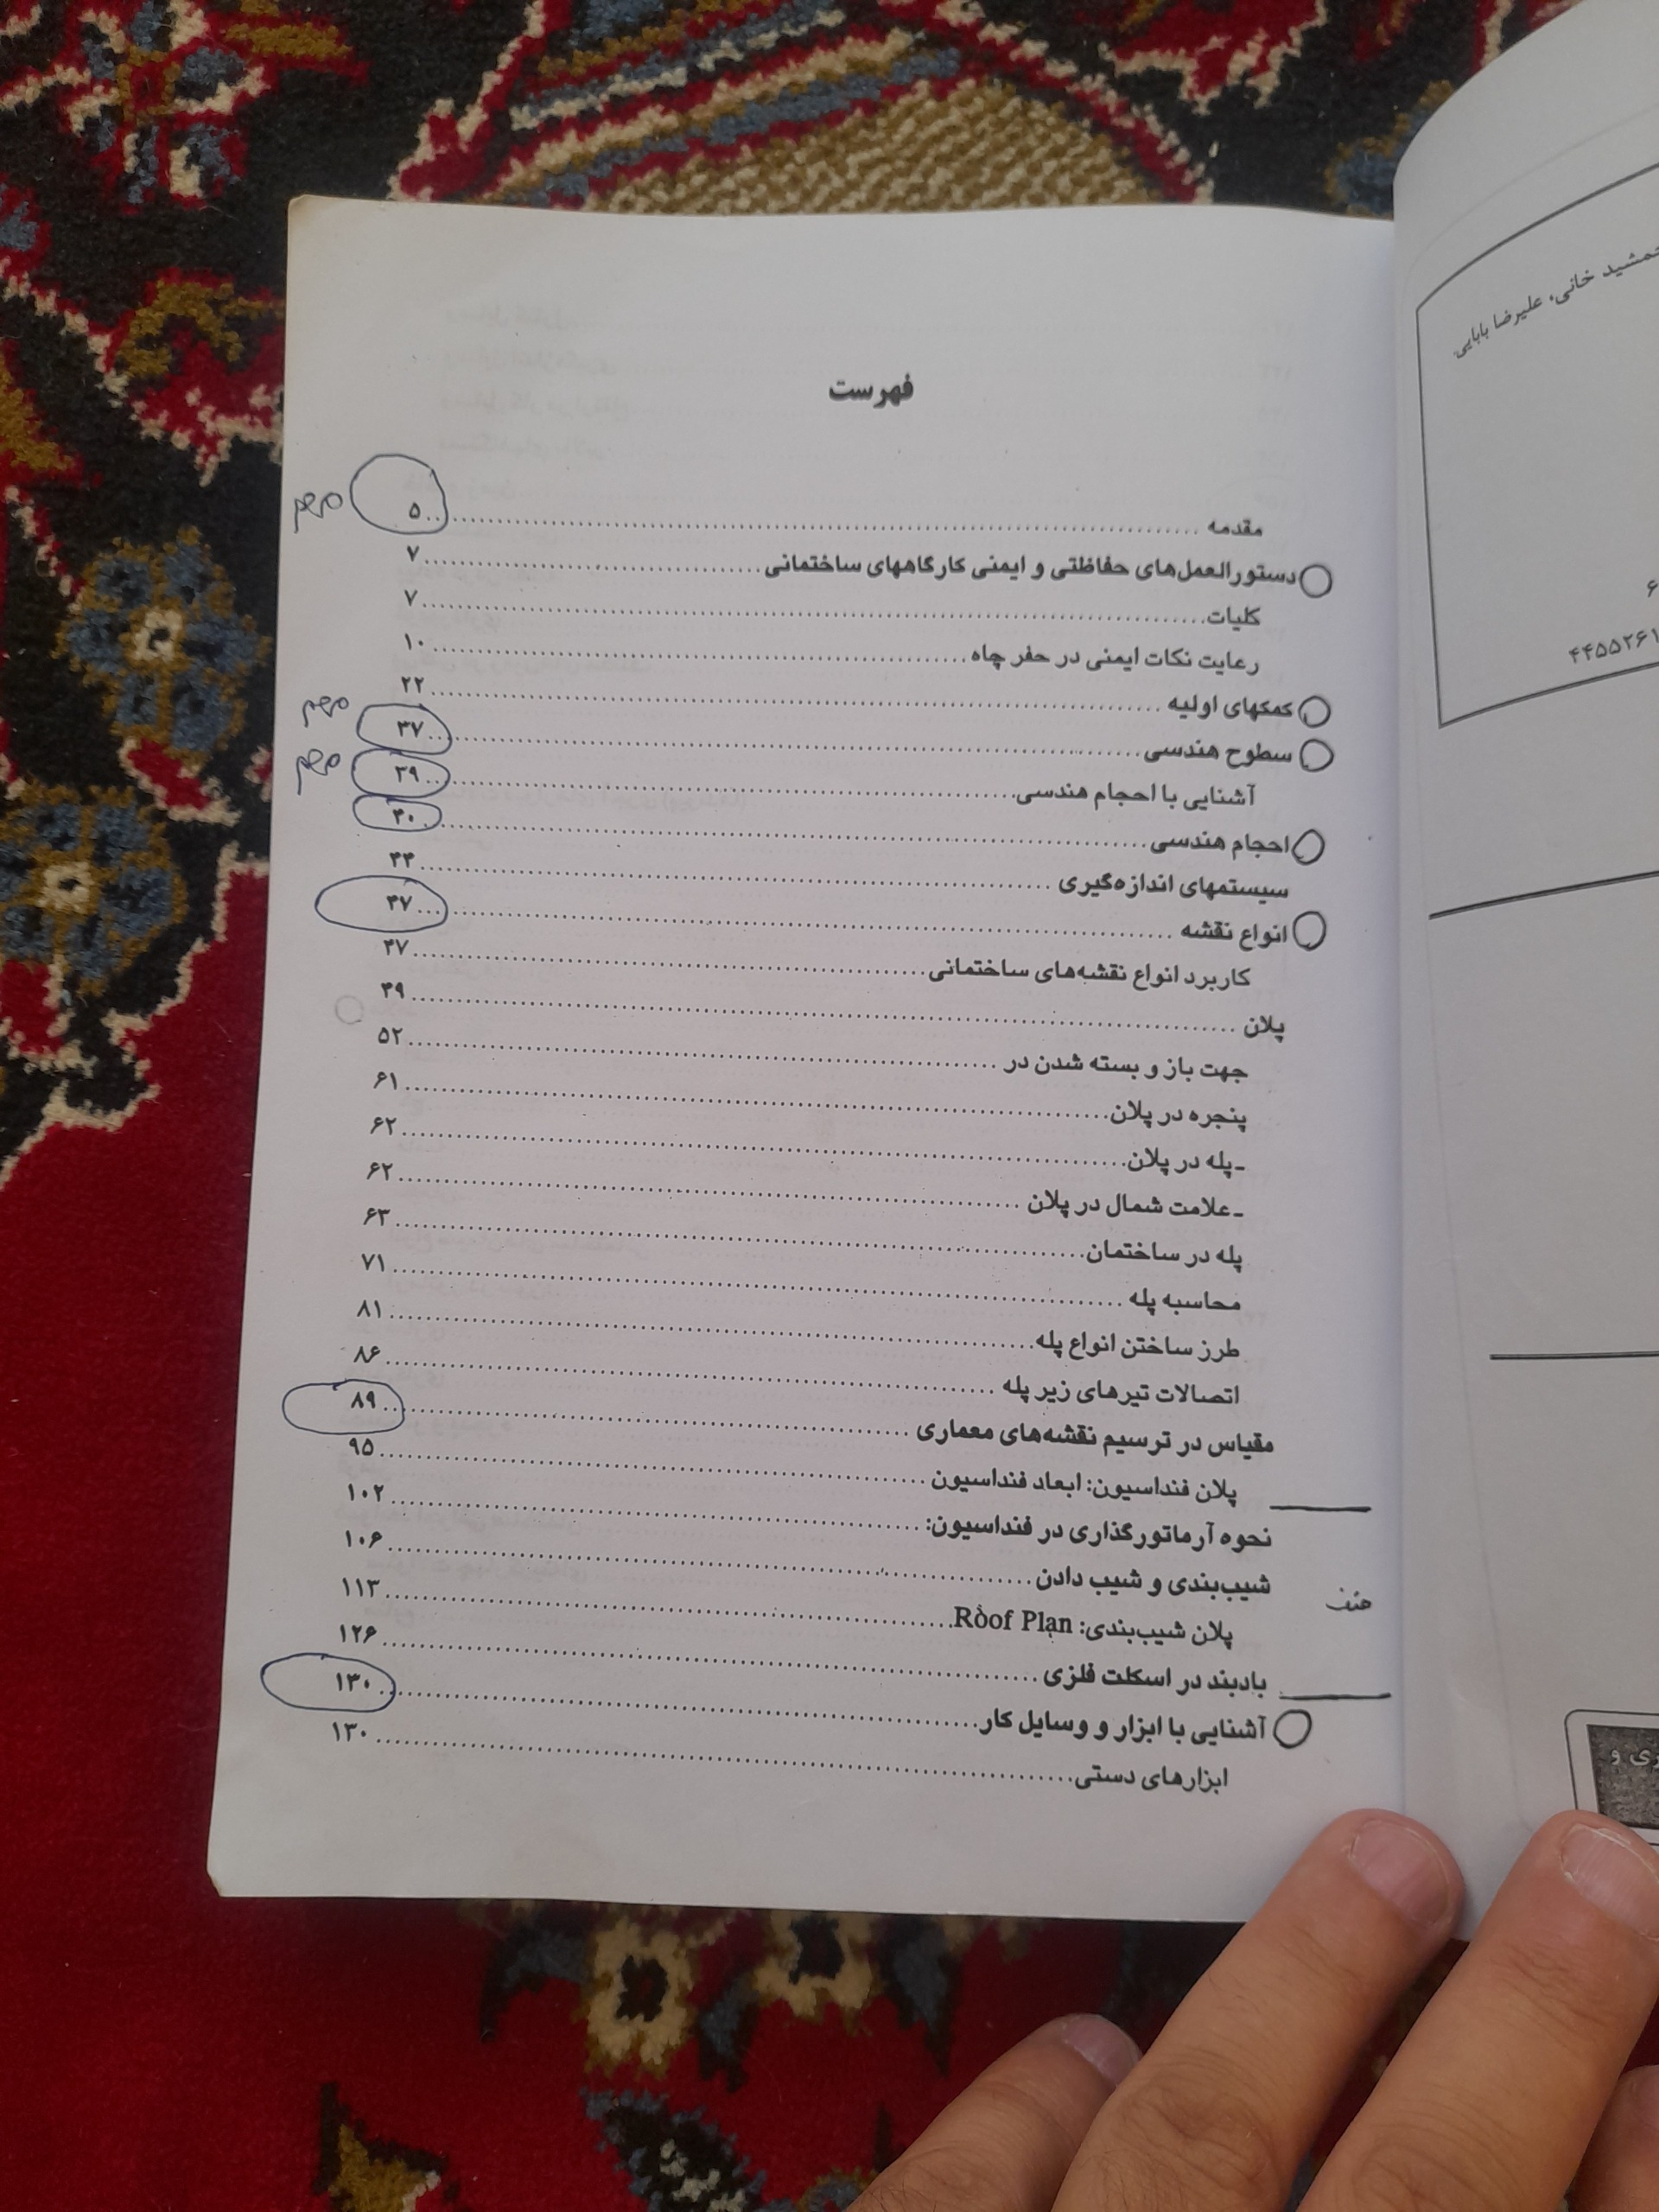 فهرست
مقدمه ........ ۵ مهم
دستورالعمل‌های حفاظتی و ایمنی کارگاههای ساختمانی ........ ۷
کلیات ........ ۷
رعایت نکات ایمنی در حفر چاه ........ ۱۰
کمکهای اولیه ........ ۲۲
سطوح هندسی ........ ۳۷ مهم
آشنایی با احجام هندسی ........ ۳۹ مهم
احجام هندسی ........ ۴۰
سیستمهای اندازه‌گیری ........ ۴۴
انواع نقشه ........ ۴۷
کاربرد انواع نقشه‌های ساختمانی ........ ۴۷
پلان ........ ۴۹
جهت باز و بسته شدن در ........ ۵۲
پنجره در پلان ........ ۶۱
ـ پله در پلان ........ ۶۲
ـ علامت شمال در پلان ........ ۶۲
پله در ساختمان ........ ۶۳
محاسبه پله ........ ۷۱
طرز ساختن انواع پله ........ ۸۱
اتصالات تیرهای زیر پله ........ ۸۶
مقیاس در ترسیم نقشه‌های معماری ........ ۸۹
پلان فنداسیون: ابعاد فنداسیون ........ ۹۵
نحوه آرماتورگذاری در فنداسیون: ........ ۱۰۲
شیب‌بندی و شیب دادن ........ ۱۰۶
حذف
پلان شیب‌بندی: Roof Plan ........ ۱۱۳
بادبند در اسکلت فلزی ........ ۱۲۶
آشنایی با ابزار و وسایل کار ........ ۱۳۰
ابزارهای دستی ........ ۱۳۰
جمشید خانی، علیرضا بابایی